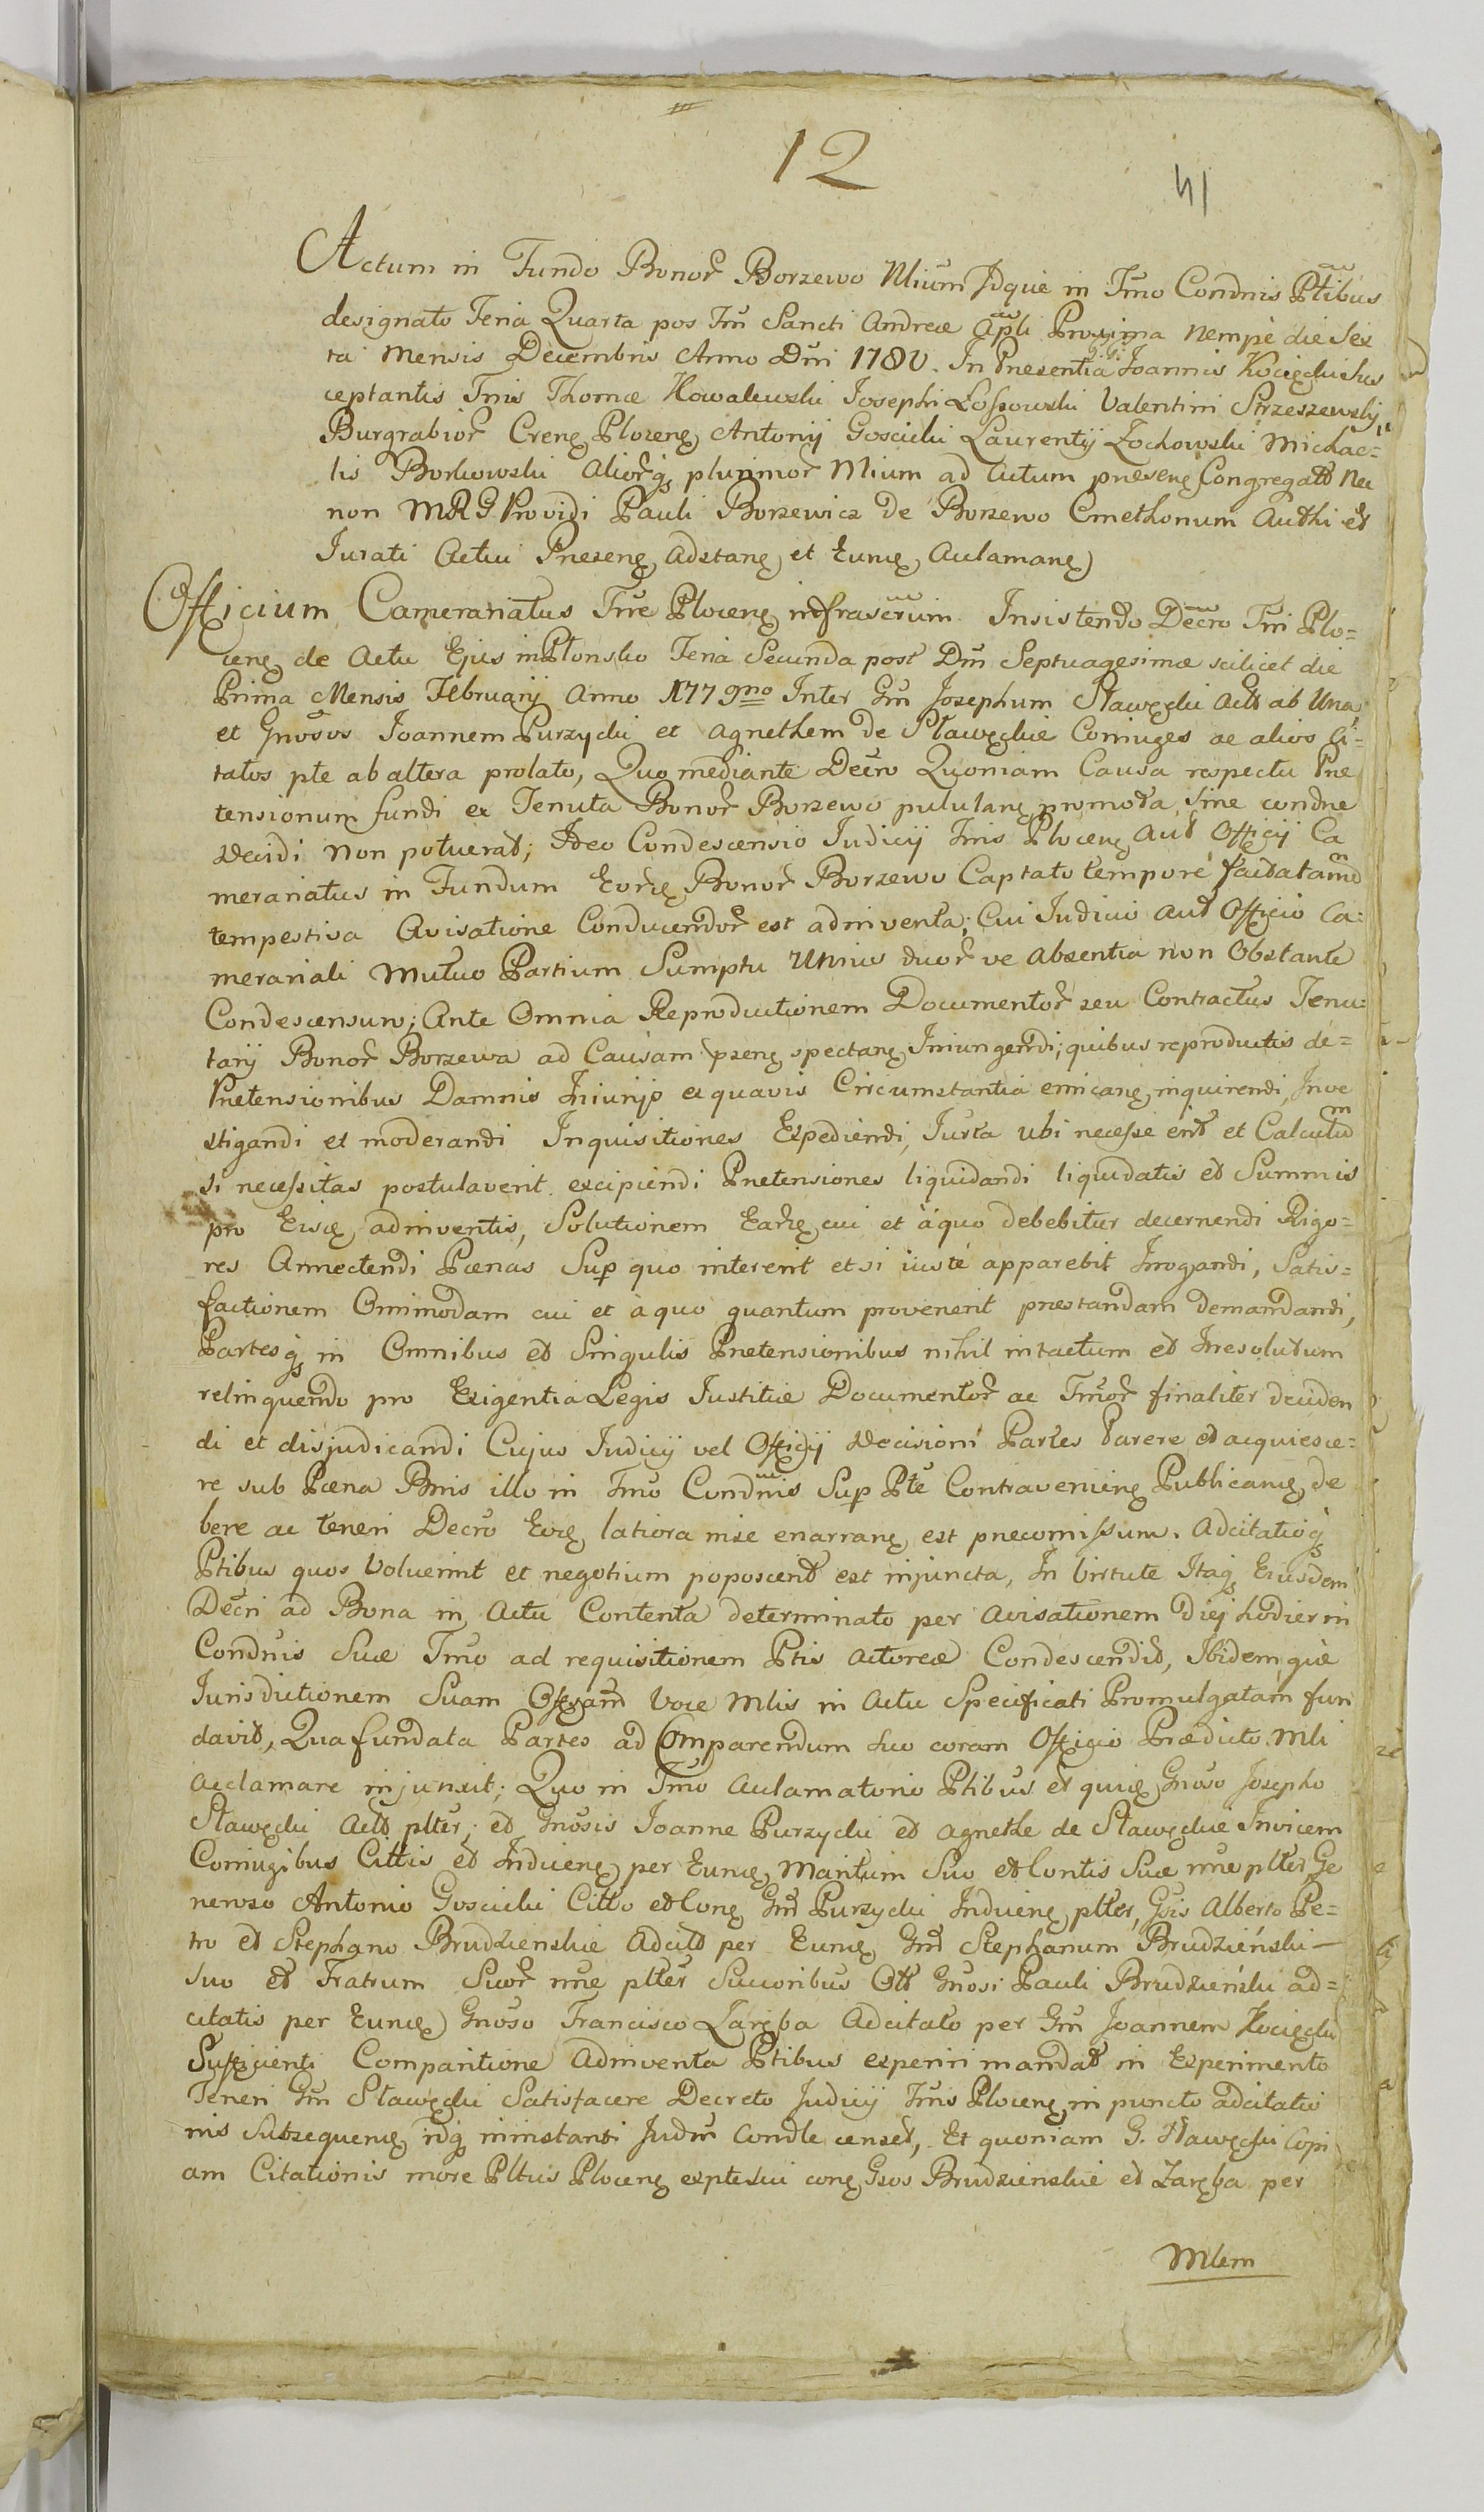 12
41
Actum in Fundo Bonor Borzewo Nlium Idque in Tmo Condnis Ptibus
designato Feria Quarta pos Fm Sancti Andreæ Apli Proxima Nempè die Sex
ta Mensis Decembris Anno Dni 1780. In Presentia GG Joannis Kocięcki Sus
ceptantis Tris Thomæ Kowalewski Josephi Lossowski Valentini Strzeszewskij
Burgrabior Creng Ploceng Antonij Goscicki Laurentij Żochowski Michae=
lis Borkowski Aliorq plurimor Nlium ad Actum preseng Congregatt Nec
non MRG Providi Pauli Borzewicz de Borzewo Cmethonum Authi et
Jurati Actui Preseng adstang et Eumg Aclamang
Officium Camerariatus Tre Ploceng infrascrum Insistendo Decro Tri Plo=
ceng de Actu Ejus in Płonsko Feria Secunda post Dm Septuagesimæ scilicet die
Prima Mensis Februarij Anno 1779no Inter Gm Josephum Sławęcki Actt ab Una
et Gnosos Joannem Purzycki et Agnethem de Sławęckie Coniuges ac alios Ci=
tatos pte ab altera prolato, Quo mediante Decro Quoniam Causa respectu Pre
tensionum fundi ex Tenuta Bonor Borzewo pululang promota Sine condne
Decidi non potuerat; Ideo Condescensio Judicij Tris Ploceng aut Officij Ca
merariatus in Fundum Eorg Bonor Borzewo Captato tempore factatamq
tempestiva Avisatione Conducendor est adinventa; Cui Judicio aut Officio Ca=
merariali Mutuo Partium Sumptu Unius duor ve Absentia non Obstante
Condescensuro; Ante Omnia Reproductionem Documentor seu Contractus Tenu=
tarij Bonor Borzewa ad Causam pseng spectang Iniungendi; quibus reproductis de=
Pretensionibus Damnis Injurijs ex quavis Circumstantia emicang inquirendi, Inve
stigandi et moderandi Inquisitiones Expediendi, Jurta ubi necesse erit et Calculum
si necessitas postulaverit excipiendi Pretensiones liquidandi liquidatis et Summis
pro Eisg adinventis, Solutionem Earg cui et àquo debebitur decernendi Rigo=
res Annectendi Pœnas Sup quo intererit et si iuste apparebit Irrogandi, Satis=
factionem Omnimodam cui et a quo quantum provenerit prestandam demandandi,
Partesq in Omnibus et Singulis Pretensionibus nihil intactum et Irresolutum
relinquendo pro Exigentia Legis Justitiæ Documentor ac Tmor finaliter deciden
di et disjudicandi Cujus Judicij vel Officij Decisioni Partes Parere et acquiesce=
re sub Pœna Bnis illo in Tmo Condnis Sup Pte Contravenieng Publicang de
bere ac teneri Decro Eog latiora in se enarrang est precomissum. Adcitatioq
Ptibus quos Voluerint et negotium poposcerit est injuncta, In Virtute Itaq Eiusdem
Decri ad Bona in Actu Contenta determinato per avisationem diej hodierni
Condnis Suæ Tmo ad requisitionem Ptis Actoreæ Condescendit, Ibidem què
Jurisdictionem Suam Offsam Voce Mlis in Actu Specificati Promulgatam fun
davit, Qua fundata Partes ad Comparendum Suo coram Officio Prædicto Mli
acclamare injunxit; Quo in Tmo Aclamatorio Ptibus et quig Gnoso Josepho
Sławęcki Actt plter, et Gnosis Joanne Purzycki et Agnethe de Sławęckie Invicem
Coniugibus Cittis et Induceng per Eumg Maritum Suo et Contis Suæ nne plter, Ge
neroso Antonio Goscicki Citto et Cong Gm Purzycki Induceng plter, Gsis Alberto Pe=
tro et Stephano Brudzienskie Adcitt per Eumg Gm Stephanum Brudzieński—
suo et Fratrum Suor nne plter Succoribus Ott Gnosi Pauli Brudzieński ad=
citatis per Eumg Gnoso Francisco Zaręba Adcitato per Gm Joannem Kocięcki
Sufficienti Comparitione Adinventa Ptibus experiri mandat in Experimento
Teneri Gm Sławęcki Satisfacere Decreto Judicij Tris Ploceng in puncto adcitatio
nis Subsequeng idq ininstanti Judm Condle censet, Et quoniam G. Sławęcki Copi
am Citationis more Pltus Ploceng expte sui cong Gsos Brudzienskie et Zaręba per
Mlem